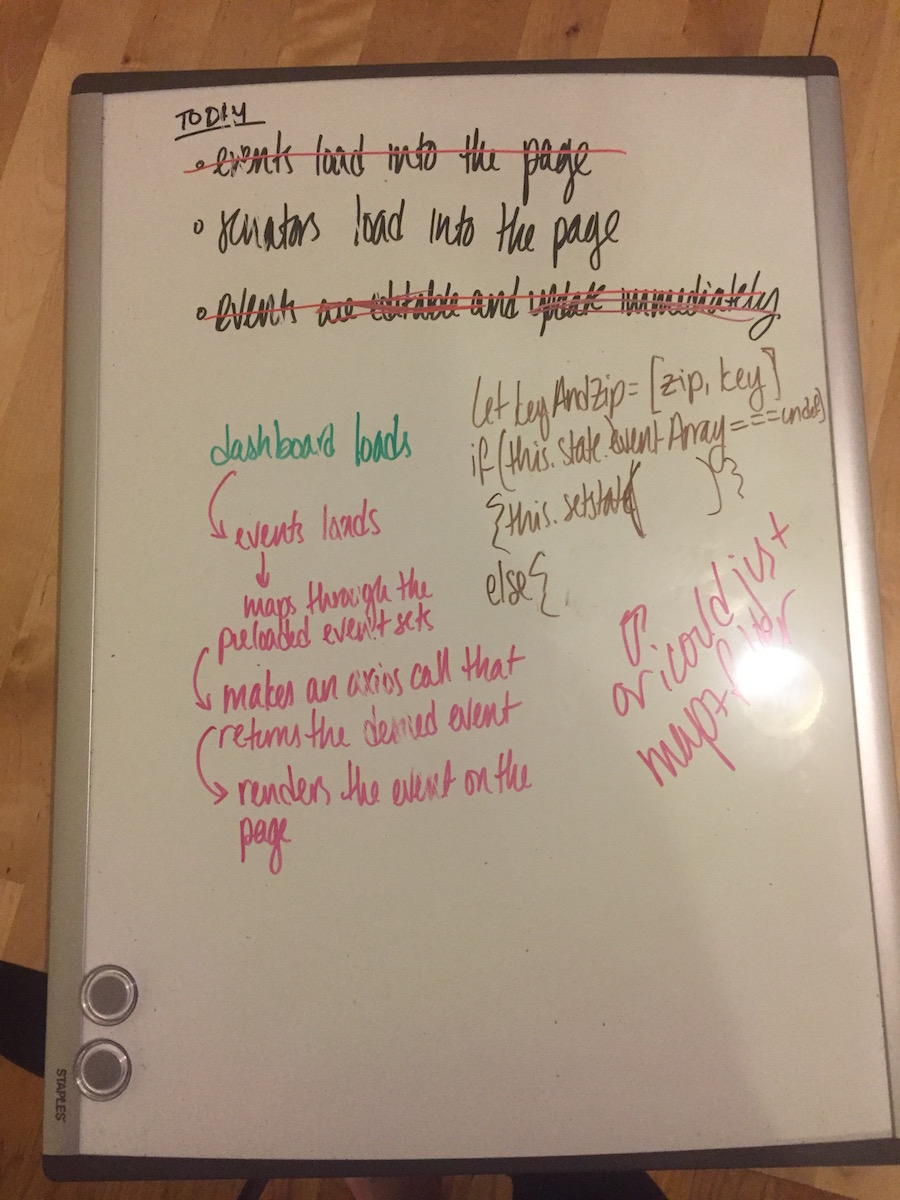 TODAY
• events load into the page
• senators load into the page
• events are editable and update immediately
dashboard loads
events loads
maps through the
preloaded event sets
makes an axios call that
returns the desired event
renders the event on the
page
let keyAndZip = [zip, key]
if (this.state.eventArray === undef)
{this.setState( )}
else {
or i could just
map + filter
STAPLES